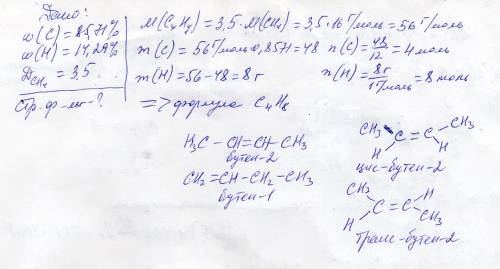 Дано:
ω(C) = 85,71%
ω(H) = 14,29%
D CH₄ = 3,5
стр. ф-ла - ?
M(CₓHᵧ) = 3,5 · M(CH₄) = 3,5 · 16 г/моль = 56 г/моль
m(C) = 56 г/моль · 0,8571 = 48 n(C) = 48/12 = 4 моль
m(H) = 56 - 48 = 8 г n(H) = 8г/1г/моль = 8 моль
=> формула C₄H₈
H₃C - CH = CH - CH₃
бутен-2
CH₂ = CH - CH₂ - CH₃
бутен-1
CH₃ CH₃
C = C
H H
цис-бутен-2
CH₃ H
C = C
H CH₃
транс-бутен-2